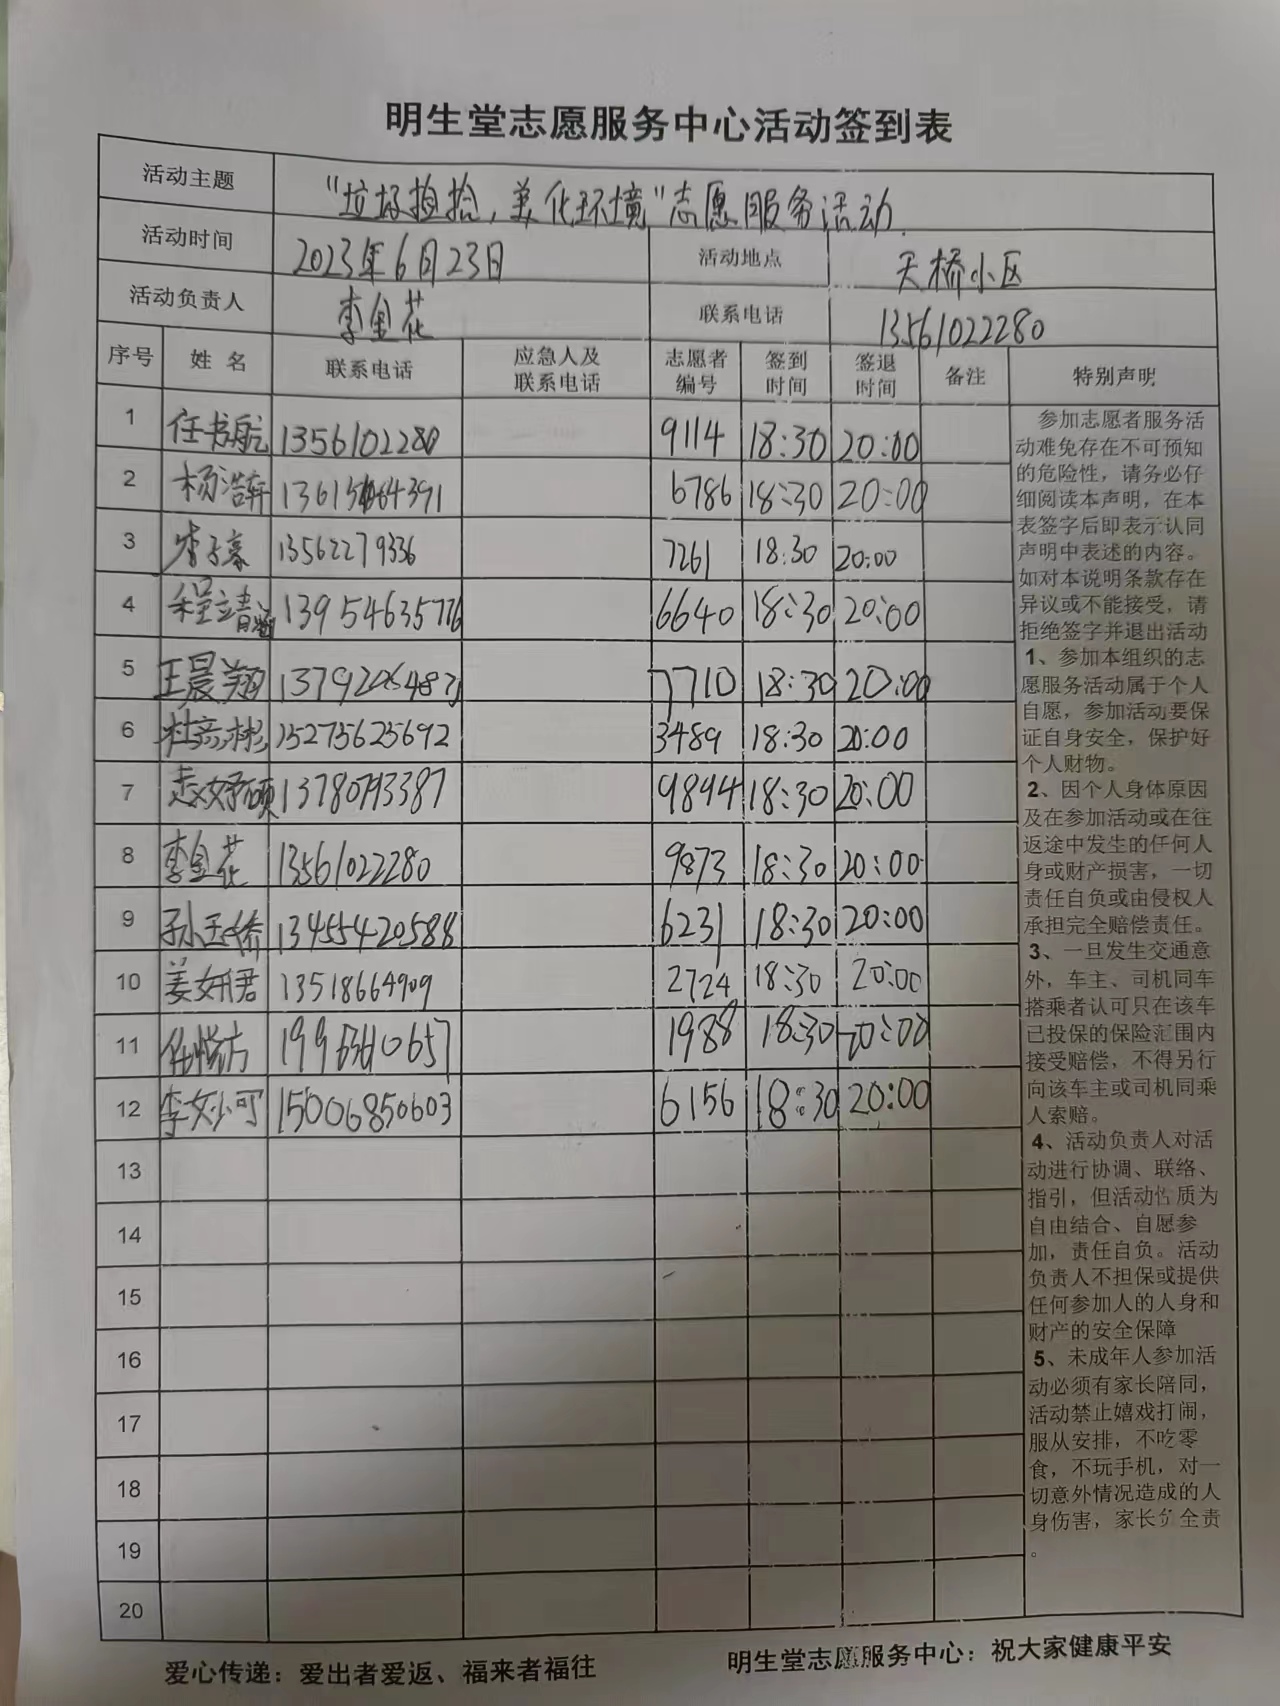 明生堂志愿服务中心活动签到表
活动主题 "垃圾捡拾,美化环境"志愿服务活动.
活动时间 2023年6月23日 活动地点 天桥小区
活动负责人 李金花 联系电话 13561022280
序号 姓名 联系电话 应急人及联系电话 志愿者编号 签到时间 签退时间 备注 特别声明
1 任书航 1356102280 9114 18:30 20:00
2 杨浩轩 6786 18:30 20:00
3 李子豪 13562279336 7261 18:30 20:00
4 程靖涵 13954635776 6640 18:30 20:00
5 王晨翔 7710 18:30 20:00
6 杜彦彬 15275625692 3489 18:30 20:00
7 9894 18:30 20:00
8 李金花 13561022280 9873 18:30 20:00
9 孙玉娇 13455420588 6231 18:30 20:00
10 姜妍君 13518664909 2724 18:30 20:00
11 1988 18:30 20:00
12 李妙可 15006850603 6156 18:30 20:00
13
14
15
16
17
18
19
20
参加志愿者服务活
动难免存在不可预知
的危险性,请务必仔
细阅读本声明,在本
表签字后即表示认同
声明中表述的内容。
如对本说明条款存在
异议或不能接受,请
拒绝签字并退出活动
1、参加本组织的志
愿服务活动属于个人
自愿,参加活动要保
证自身安全,保护好
个人财物。
2、因个人身体原因
及在参加活动或在往
返途中发生的任何人
身或财产损害,一切
责任自负或由侵权人
承担完全赔偿责任。
3、一旦发生交通意
外,车主、司机同车
搭乘者认可只在该车
已投保的保险范围内
接受赔偿,不得另行
向该车主或司机同乘
人索赔。
4、活动负责人对活
动进行协调、联络、
指引,但活动性质为
自由结合、自愿参
加,责任自负。活动
负责人不担保或提供
任何参加人的人身和
财产的安全保障
5、未成年人参加活
动必须有家长陪同,
活动禁止嬉戏打闹,
服从安排,不吃零
食,不玩手机,对一
切意外情况造成的人
身伤害,家长负全责
。
爱心传递:爱出者爱返、福来者福往 明生堂志愿服务中心:祝大家健康平安